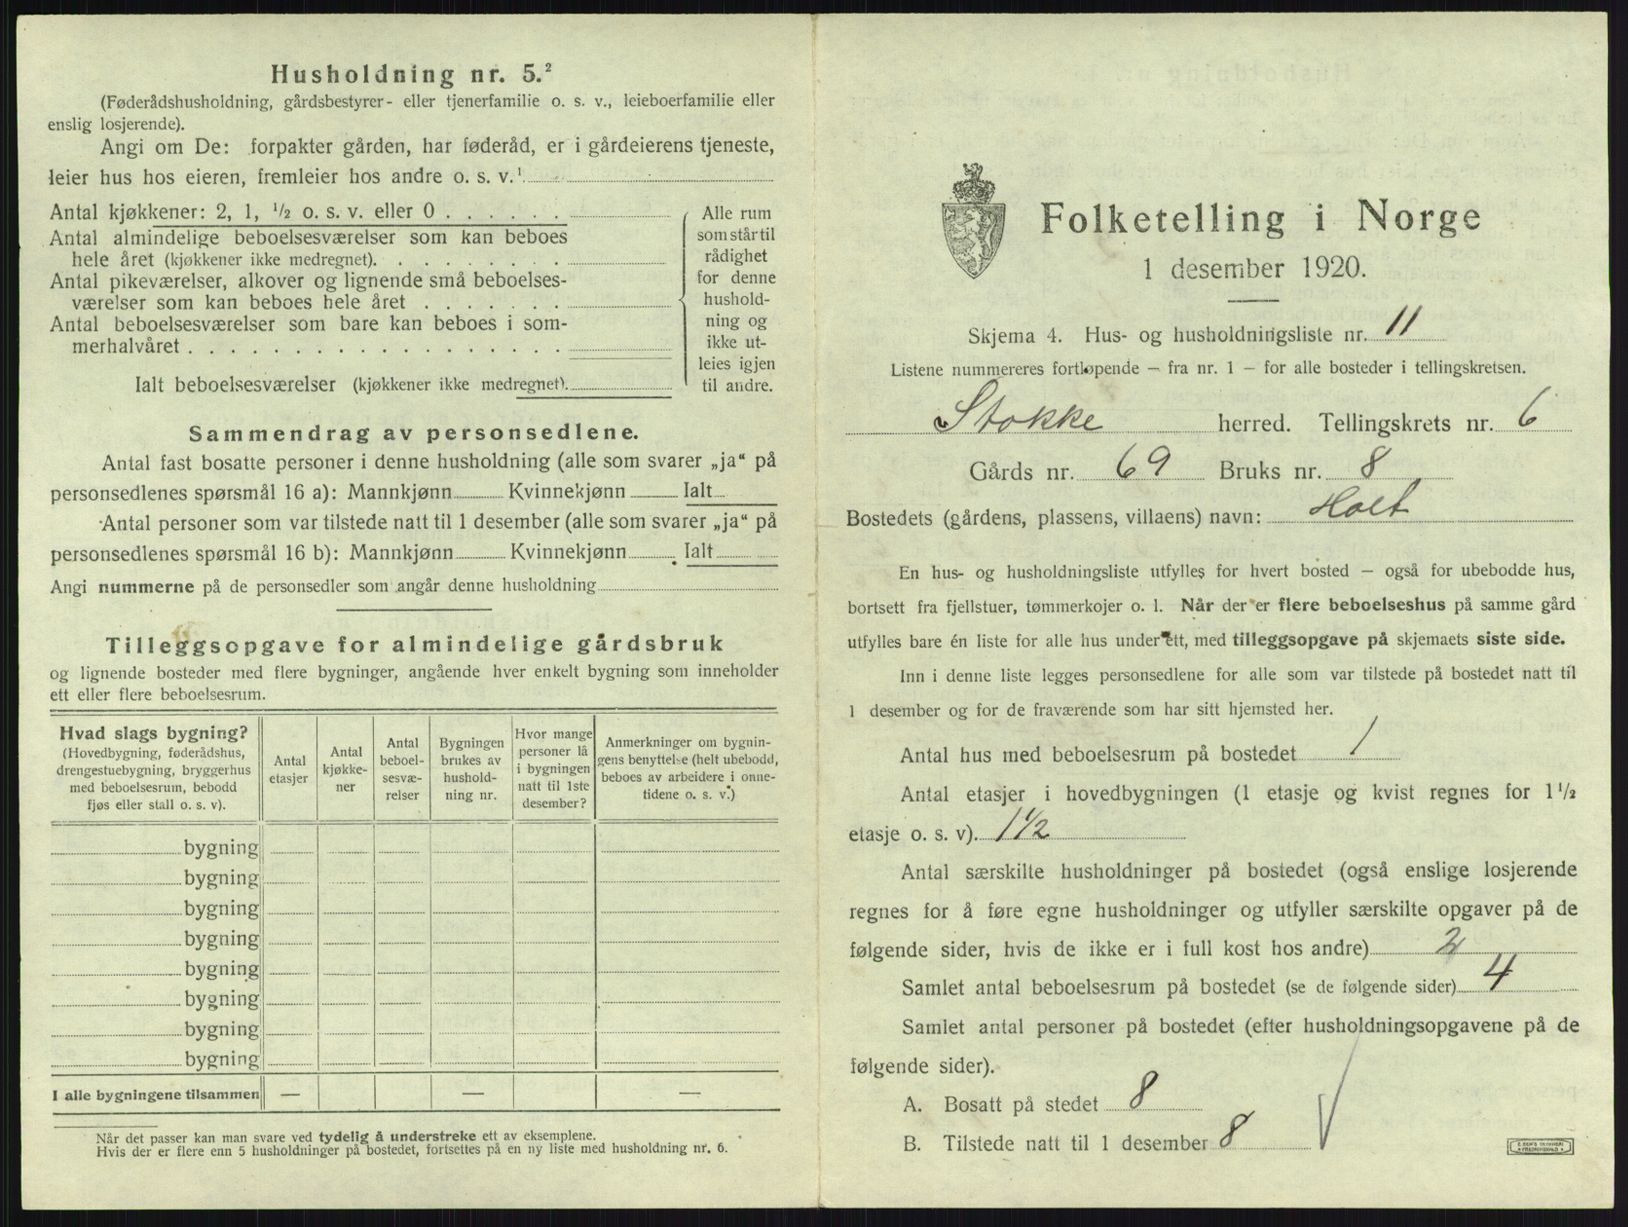 Husholdning nr. 5.²
(Føderådshusholdning, gårdsbestyrer- eller tjenerfamilie o. s. v., leieboerfamilie eller
enslig losjerende).
Angi om De: forpakter gården, har føderåd, er i gårdeierens tjeneste,
leier hus hos eieren, fremleier hos andre o. s. v.¹
Antal kjøkkener: 2, 1, ½ o. s. v. eller 0 . . . . . .
Antal almindelige beboelsesværelser som kan beboes
hele året (kjøkkener ikke medregnet). . . . . . . . .
Antal pikeværelser, alkover og lignende små beboelses-
værelser som kan beboes hele året . . . . . . .
Antal beboelsesværelser som bare kan beboes i som-
merhalvåret . . . . . . . . . . . . . . . . . .
Ialt beboelsesværelser (kjøkkener ikke medregnet).
Alle rum
som står til
rådighet
for denne
hushold-
ning og
ikke ut-
leies igjen
til andre.
Sammendrag av personsedlene.
Antal fast bosatte personer i denne husholdning (alle som svarer „ja“ på
personsedlenes spørsmål 16 a): Mannkjønn Kvinnekjønn Ialt
Antal personer som var tilstede natt til 1 desember (alle som svarer „ja“ på
personsedlenes spørsmål 16 b): Mannkjønn Kvinnekjønn Ialt
Angi nummerne på de personsedler som angår denne husholdning
Tilleggsopgave for almindelige gårdsbruk
og lignende bosteder med flere bygninger, angående hver enkelt bygning som inneholder
ett eller flere beboelsesrum.
Hvad slags bygning?
(Hovedbygning, føderådshus,
drengestuebygning, bryggerhus
med beboelsesrum, bebodd
fjøs eller stall o. s. v).
Antal
etasjer
Antal
kjøkke-
ner
Antal
beboel-
sesvæ-
relser
Bygningen
brukes av
hushold-
ning nr.
Hvor mange
personer lå
i bygningen
natt til 1ste
desember?
Anmerkninger om bygnin-
gens benyttelse (helt ubebodd,
beboes av arbeidere i onne-
tidene o. s. v.)
bygning
bygning
bygning
bygning
bygning
bygning
bygning
bygning
I alle bygningene tilsammen — — —
Når det passer kan man svare ved tydelig å understreke ett av eksemplene.
Hvis der er flere enn 5 husholdninger på bostedet, fortsettes på en ny liste med husholdning nr. 6.
Folketelling i Norge
1 desember 1920.
Skjema 4. Hus- og husholdningsliste nr. 11
Listene nummereres fortløpende — fra nr. 1 — for alle bosteder i tellingskretsen.
Stokke herred. Tellingskrets nr. 6
Gårds nr. 69 Bruks nr. 8
Bostedets (gårdens, plassens, villaens) navn: Holt
En hus- og husholdningsliste utfylles for hvert bosted — også for ubebodde hus,
bortsett fra fjellstuer, tømmerkojer o. l. Når der er flere beboelseshus på samme gård
utfylles bare én liste for alle hus under ett, med tilleggsopgave på skjemaets siste side.
Inn i denne liste legges personsedlene for alle som var tilstede på bostedet natt til
1 desember og for de fraværende som har sitt hjemsted her.
Antal hus med beboelsesrum på bostedet 1
Antal etasjer i hovedbygningen (1 etasje og kvist regnes for 1½
etasje o. s. v). 1½
Antal særskilte husholdninger på bostedet (også enslige losjerende
regnes for å føre egne husholdninger og utfyller særskilte opgaver på de
følgende sider, hvis de ikke er i full kost hos andre) 2
Samlet antal beboelsesrum på bostedet (se de følgende sider) 4
Samlet antal personer på bostedet (efter husholdningsopgavene på de
følgende sider).
A. Bosatt på stedet 8
B. Tilstede natt til 1 desember 8